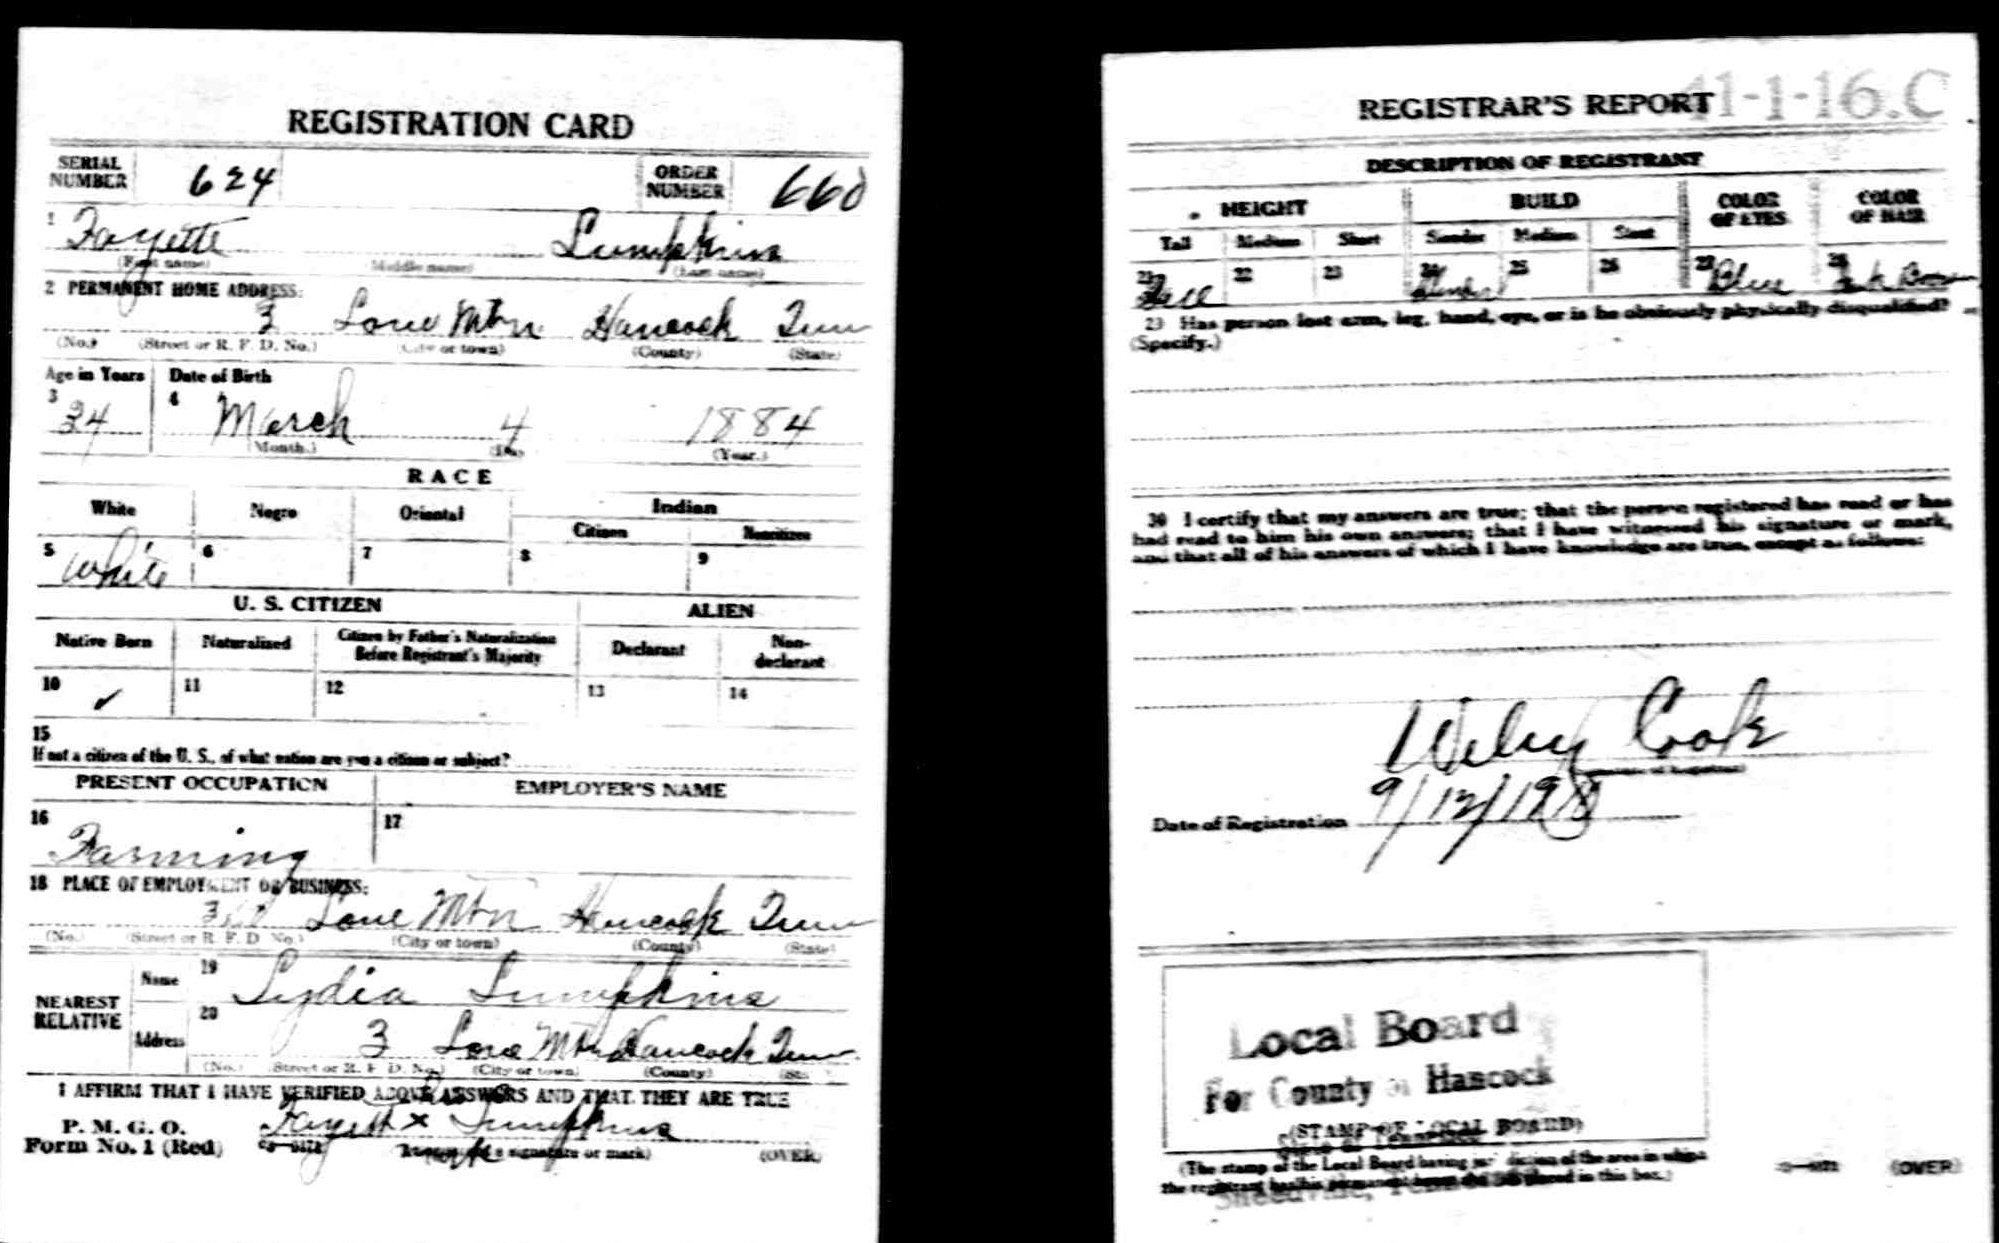 REGISTRATION CARD
SERIAL NUMBER 624 ORDER NUMBER 660
1 Fayette Lumpkins
(First name) (Middle name) (Last name)
2 PERMANENT HOME ADDRESS:
3 Lone Mtn Hancock Tenn
(No.) (Street or R. F. D. No.) (City or town) (County) (State)
Age in Years Date of Birth
3 34 4 March 4 1884
(Month.) (Day) (Year.)
RACE
White Negro Oriental Indian
Citizen Noncitizen
5 White 6 7 8 9
U. S. CITIZEN ALIEN
Native Born Naturalized Citizen by Father's Naturalization Before Registrant's Majority Declarant Non-declarant
10 ✓ 11 12 13 14
15
If not a citizen of the U. S., of what nation are you a citizen or subject?
PRESENT OCCUPATION EMPLOYER'S NAME
16 Farming 17
18 PLACE OF EMPLOYMENT OR BUSINESS:
3 Lone Mtn Hancock Tenn
(No.) (Street or R. F. D. No.) (City or town) (County) (State)
NEAREST RELATIVE
Name 19 Lydia Lumpkins
Address 20 3 Lone Mtn Hancock Tenn
(No.) (Street or R. F. D. No.) (City or town) (County)
I AFFIRM THAT I HAVE VERIFIED ABOVE ANSWERS AND THAT THEY ARE TRUE
P. M. G. O.
Form No. 1 (Red) Fayett x Lumpkins
(Registrant's signature or mark) (OVER)
REGISTRAR'S REPORT 41-1-16.C
DESCRIPTION OF REGISTRANT
HEIGHT BUILD COLOR OF EYES COLOR OF HAIR
Tall Medium Short Slender Medium Stout
21 Tall 22 23 24 Slender 25 26 27 Blue 28 Dark Brown
29 Has person lost arm, leg, hand, eye, or is he obviously physically disqualified?
(Specify.)
30 I certify that my answers are true; that the person registered has read or has
had read to him his own answers; that I have witnessed his signature or mark,
and that all of his answers of which I have knowledge are true, except as follows:
Wiley Cook
(Signature of Registrar)
Date of Registration 9/12/1918
Local Board
For County of Hancock
(STAMP OF LOCAL BOARD)
State of Tennessee
(The stamp of the Local Board having jurisdiction of the area in which
the registrant has his permanent home shall be placed in this box.)
Sneedville, Tennessee
(OVER)